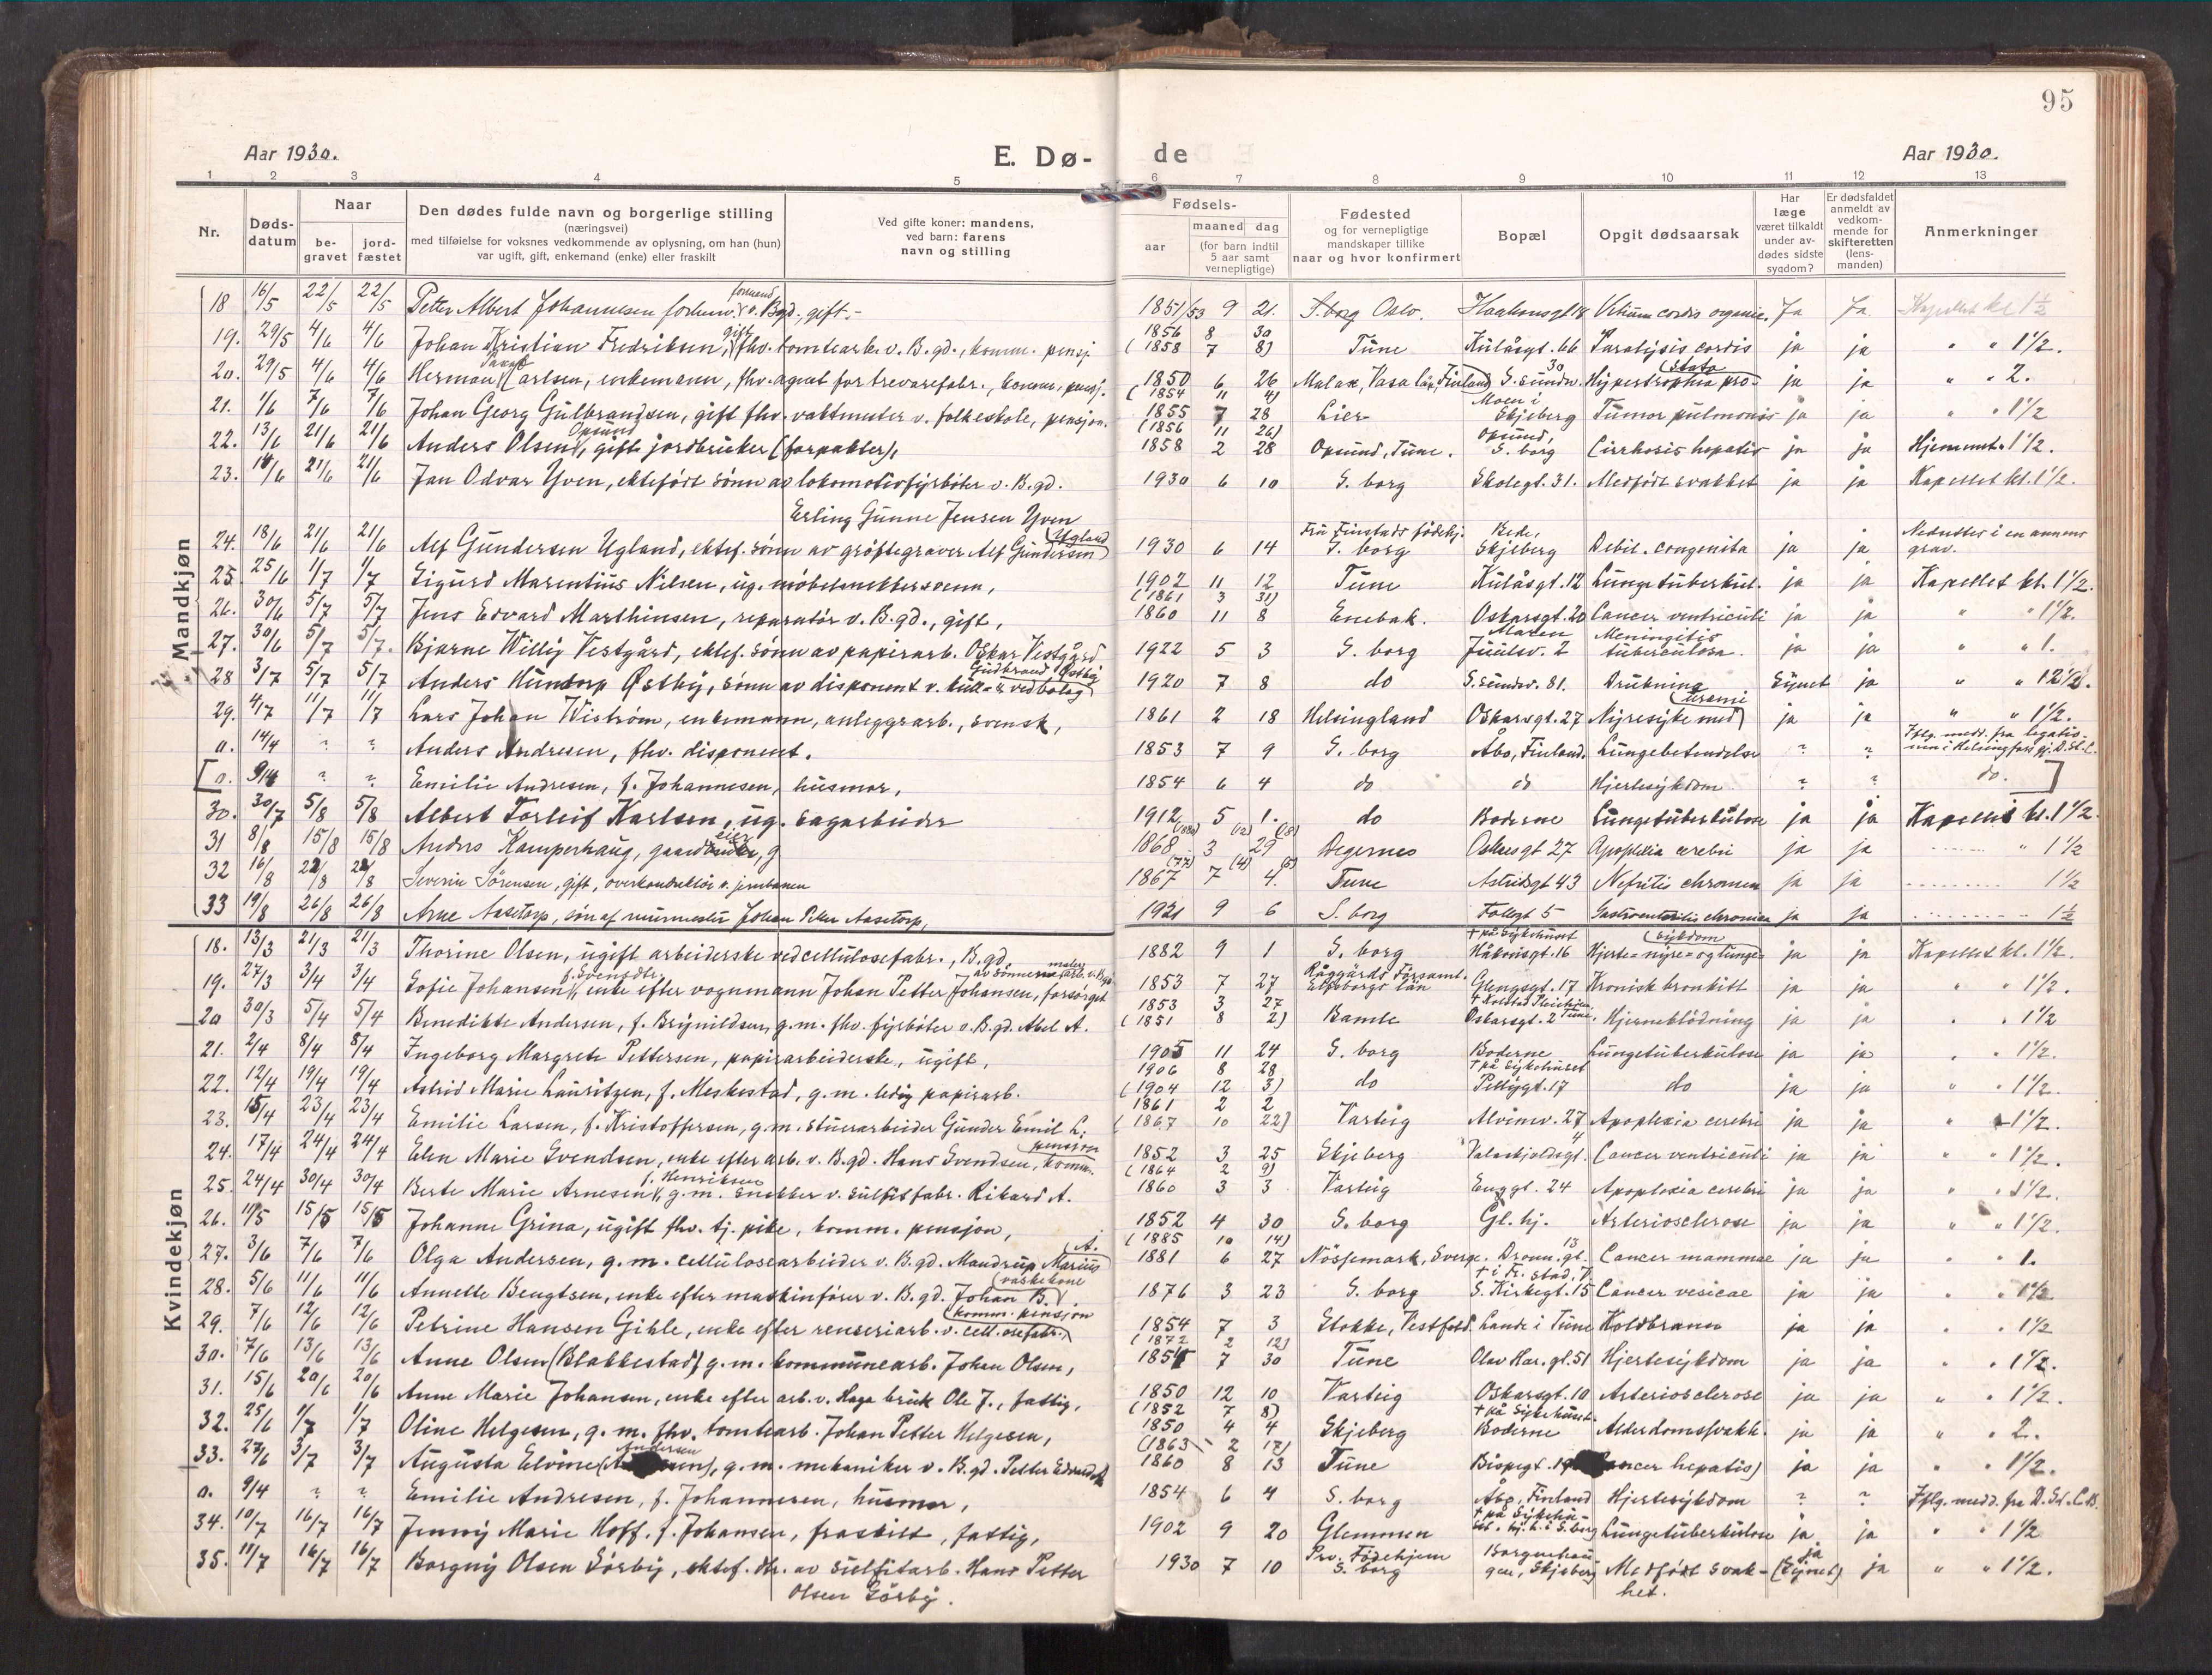 95
Aar 1930.
E. Dø-
de
Aar 1930.
1 2 3 4 5 6 7 8 9 10 11 12 13
Nr.
Døds-
datum
Naar
be-
gravet
jord-
fæstet
Den dødes fulde navn og borgerlige stilling
(næringsvei)
med tilføielse for voksnes vedkommende av oplysning, om han (hun)
var ugift, gift, enkemand (enke) eller fraskilt
Ved gifte koner: mandens,
ved barn: farens
navn og stilling
Fødsels-
aar
maaned dag
(for barn indtil
5 aar samt
vernepligtige)
Fødested
og for vernepligtige
mandskaper tillike
naar og hvor konfirmert
Bopæl
Opgit dødsaarsak
Har
læge
været tilkaldt
under av-
dødes sidste
sygdom?
Er dødsfaldet
anmeldt av
vedkom-
mende for
skifteretten
(lens-
manden)
Anmerkninger
Mandkjøn
18 16/5 22/5 22/5 Petter Albert Johannesen formand v. B.gd., gift.- 1851/53 9 21. S.borg Oslo. Haakonsgt 18 Vitium cordis organic. Ja Ja Kapellet kl 1 1/2
19. 29/5 4/6 4/6 Johan Kristian Fredriksen, gift fhv. tomtearb. v. B.gd., komm. pensj. 1856 8 30 (1858 7 8) Tune Kulåsgt. 66 Paralysis cordis ja ja " " 1 1/2.
20. 29/5 4/6 4/6 Herman Carlsen, enkemann, fhv. agent for trevarefabr., komm. pensj. 1850 6 26 (1854 11 4) Malax, Vasa län, Finland S. sundv. 30 Hypertrophia prostata ja ja " " 2.
21. 1/6 7/6 7/6 Johan Georg Gulbrandsen, gift fhv. vaktmester v. folkeskole, pensjon. 1855 7 28 (1856 11 26) Lier Moen i Skjeberg Tumor pulmonis ja ja " " 1 1/2
22. 13/6 21/6 21/6 Anders Olsen Opsund, gift jordbruker (forpakter), 1858 2 28 Opsund, Tune. Opsund, S. borg Cirrhosis hepatis ja ja Hjemmet. 1 1/2.
23. 14/6 21/6 21/6 Jan Odvar Yven, ektefødt sønn av lokomotivfyrbøter v. B.gd. 1930 6 10 S. borg Skolegt. 31. Medfødt svakhet ja ja Kapellet kl. 1 1/2.
Erling Gunne Jensen Yven
24. 18/6 21/6 21/6 Alf Gundersen Ugland, ektef. sønn av grøftegraver Alf Gundersen Ugland 1930 6 14 Fru Finstads fødehj. S. borg Rede, Skjeberg Debil. congenita ja ja Nedsettes i en annens grav.
25. 25/6 1/7 1/7 Sigurd Marentius Nilsen, ug. møbelsnekkersvenn, 1902 11 12 Tune Kulåsgt. 12 Lungetuberkul. ja ja Kapellet kl. 1 1/2.
26. 30/6 5/7 5/7 Jens Edvard Marthinsen, reparatør v. B.gd., gift, (1861 3 31) 1860 11 8 Enebak. Oskarsgt. 20 Cancer ventriculi ja ja " " 1 1/2.
27. 30/6 5/7 5/7. Bjarne Willy Vestgård, ektef. sønn av papirarb. Oskar Vestgård 1922 5 3 S. borg Maren Juulsv. 2 Meningitis tuberculosa. ja ja " " 1.
28 3/7 5/7 5/7 Anders Huntorp Østby, sønn av disponent v. kull- & vedbolag Gudbrand Østby 1920 7 8 do S. sundv. 81. Drukning Synet ja " " 12 1/2.
29. 4/7 11/7 11/7 Lars Johan Wistrøm, enkemann, anleggsarb., svensk, 1861 2 18 Helsingland Oskarsgt. 27 Nyresyke med uremi ja ja " " 1 1/2.
a. 14/4 ? ? Anders Andresen, fhv. disponent. 1853 7 9 S. borg Åbo, Finland. Lungebetendelse ? ? Iflg. medd. fra legatio- nen i Helsingfors gj. D.St.C.
[a. 9/4 ? ? Emilie Andresen, f. Johannesen, husmor, 1854 6 4 do do Hjertesykdom ? ? do. ]
30. 30/7 5/8 5/8 Albert Torleif Karlsen, ug. sagarbeider 1912 5 1. do Boderne Lungetuberkulose ja ja Kapellet kl. 1 1/2.
31 8/8 15/8 15/8 Anders Kamperhaug, gaardeier, g 1868 3 29 Degernes Oskarsgt 27 Apoplexia cerebri ja ja " 1 1/2
32 16/8 22/8 22/8 Severin Sørensen, gift, overkonduktør v. jernbanen 1867 7 4. Tune Astridsgt 43 Nefritis chronica ja ja 1 1/2
33 19/8 26/8 26/8 Arne Aasetorp, søn af murmester Johan Peter Aasetorp, 1921 9 6 S. borg Tollegt 5 Gastroenteritis chronica ja ja 1 1/2
Kvindekjøn
18. 13/3 21/3 21/3 Thorine Olsen, ugift arbeiderske ved cellulosefabr., B.gd. 1882 9 1 S. borg + på sykehuset Håkonsgt. 16 Hjerte- nyre- og lunge- sykdom ja ja Kapellet kl. 1 1/2.
19. 27/3 3/4 3/4 Sofie Johansen f. Svensdtr., enke efter vognmann Johan Petter Johansen, forsørget av sønnen 1853 7 27 Råggärds Församl. Elfsborgs län Glengsgt. 17 Kronisk bronkitt ja ja " " 1 1/2.
20 30/3 5/4 5/4 Benedikte Andersen, f. Brynildsen, g.m. fhv. fyrbøter v. B.gd. Abel A. 1853 3 27 (1851 8 2) Bamle Oskarsgt. 2 Hjerneblødning ja ja " " 1 1/2
21. 2/4 8/4 8/4 Ingeborg Margrete Pettersen, papirarbeiderske, ugift, 1905 11 24 S. borg Boderne Lungetuberkulose ja ja " " 1 1/2.
22. 12/4 19/4 19/4 Astrid Marie Lauritzen, f. Meskestad, g.m. ledig papirarb. 1906 8 28 (1904 12 3) do + på sykehuset Pellygt. 17 do ja ja " " 1 1/2.
23. 15/4 23/4 23/4 Emilie Larsen, f. Kristoffersen, g.m. stuerarbeider Gunder Emil L. 1861 2 2 (1867 10 22) Varteig Alvimv. 27 Apoplexia cerebri ja ja " 1 1/2.
24. 17/4 24/4 24/4 Elen Marie Svendsen, enke efter arb. v. B.gd. Hans Svendsen, komm. pensjon 1852 3 25 Skjeberg Valaskjoldsgt. 4 Cancer ventriculi ja ja " " 1 1/2.
25. 24/4 30/4 30/4 Berte Marie Arnesen f. Henriksen, g.m. snekker v. sulfitfabr. Rikard A. (1864 2 9) 1860 3 3 Varteig Enggt. 24 Apoplexia cerebri ja ja " " 1 1/2.
26. 11/5 15/5 15/5 Johanne Grina, ugift fhv. tj. pike, komm. pensjon, 1852 4 30 S. borg Gl. hj. Arteriosclerose ja ja " " 1 1/2.
27. 3/6 7/6 7/6 Olga Andersen, g.m. cellulosearbeider v. B.gd. Mandrup Marius A. (1885 10 14) 1881 6 27 Nössemark, Sverge. Dronn. gt. 13 Cancer mammae ja ja " " 1.
28. 5/6 11/6 11/6 Annette Bengtsen, enke efter maskinfører v. B.gd. Johan B. vaskekone 1876 3 23 S. borg + i Fr. stad, S. Kirkegt. 15 Cancer vesicae ja ja " " 1 1/2
29. 7/6 12/6 12/6 Petrine Hansen Gihle, enke efter renseriarb. v. cell.osefabr. komm. pensjon 1854 7 3 Stokke, Vestfold. Lande i Tune Koldbrann ja ja " " 1 1/2
30. 7/6 13/6 13/6 Anne Olsen (Blakkestad) g.m. kommunearb. Johan Olsen, (1872 2 12) 1854 7 30 Tune Olav Har. gt. 51 Hjertesykdom ja ja " " 1 1/2.
31. 15/6 20/6 20/6 Anne Marie Johansen, enke efter arb. v. Haga bruk Ole J., fattig, 1850 12 10 Varteig Oskarsgt. 10 Arteriosclerose ja ja " " 1 1/2.
32. 25/6 1/7 1/7 Oline Helgesen, g.m. fhv. tomtearb. Johan Petter Helgesen, (1852 7 8) 1850 4 4 Skjeberg + på sykehuset. Boderne Alderdomssvakh. ja ja " " 2.
33. 27/6 3/7 3/7 Augusta Elvine Andersen, g.m. mekaniker v. B.gd. Petter (1863 2 17) 1860 8 13 Tune Bispegt. Cancer hepatis ja ja " " 1 1/2.
a. 9/4 ? ? Emilie Andresen, f. Johannesen, husmor, 1854 6 4 S. borg Åbo, Finland Hjertesykdom ? ? Iflg. medd. fra D. St. C. B.
34. 10/7 16/7 16/7 Jenny Marie Hoff, f. Johansen, fraskilt, fattig, 1902 9 20 Glemmen + på sykehu- set i S. borg Lungetuberkulose ja ja " " 1 1/2
35. 11/7 16/7 16/7 Borgny Olsen Sørby, ektef. dtr. av sulfitarb. Hans Petter 1930 7 10 Prv. Fødehjem S. borg Borgenhau- gen, Skjeberg Medfødt svak- ja (Synet) ja " " 1 1/2.
Olsen Sørby. het.